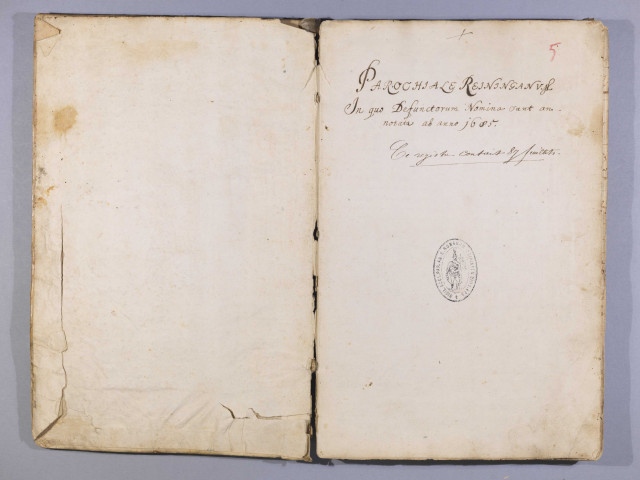 5
PAROCHIALE REININGANUM
In quo Defunctorum Nomina sunt an-
notata ab anno 1685.
Ce registre contient 89 feuillets.